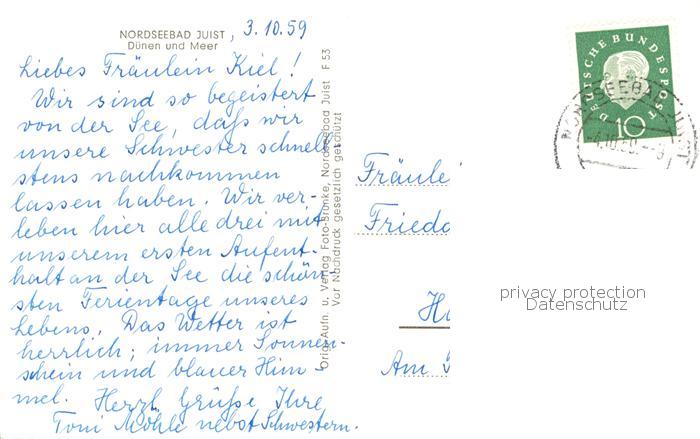 NORDSEEBAD JUIST, 3.10.59
Dünen und Meer
Liebes Fräulein Kiel!
Wir sind so begeistert
von der See, daß wir
unsere Schwester schnell
stens nachkommen
lassen haben. Wir ver-
leben hier alle drei mit
unserem ersten Aufent-
halt an der See die schön
sten Ferientage unseres
Lebens. Das Wetter ist
herrlich; immer Sonnen-
schein und blauer Him
mel. Herzl. Grüße Ihre
Toni Möhle nebst Schwestern.
Orig.-Aufn. u. Verlag Foto-Brünke, Nordseebad Juist F 53
Vor Nachdruck gesetzlich geschützt
DEUTSCHE BUNDESPOST
10
NORDSEEBAD JUIST
Fräulei
Frieda
Am
privacy protection
Datenschutz